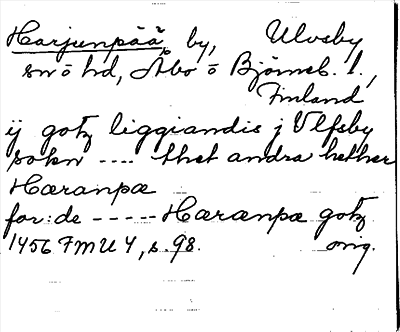 Harjunpää, by, Ulvsby
sn ö hd, Åbo o Björneb. l.,
Finland
ij gotz liggiandis j Vlfsby
sokn .... thet andra hether
Haranpæ
for:de ----- Haranpæ gotz
1456 FMU 4, s. 98. orig.